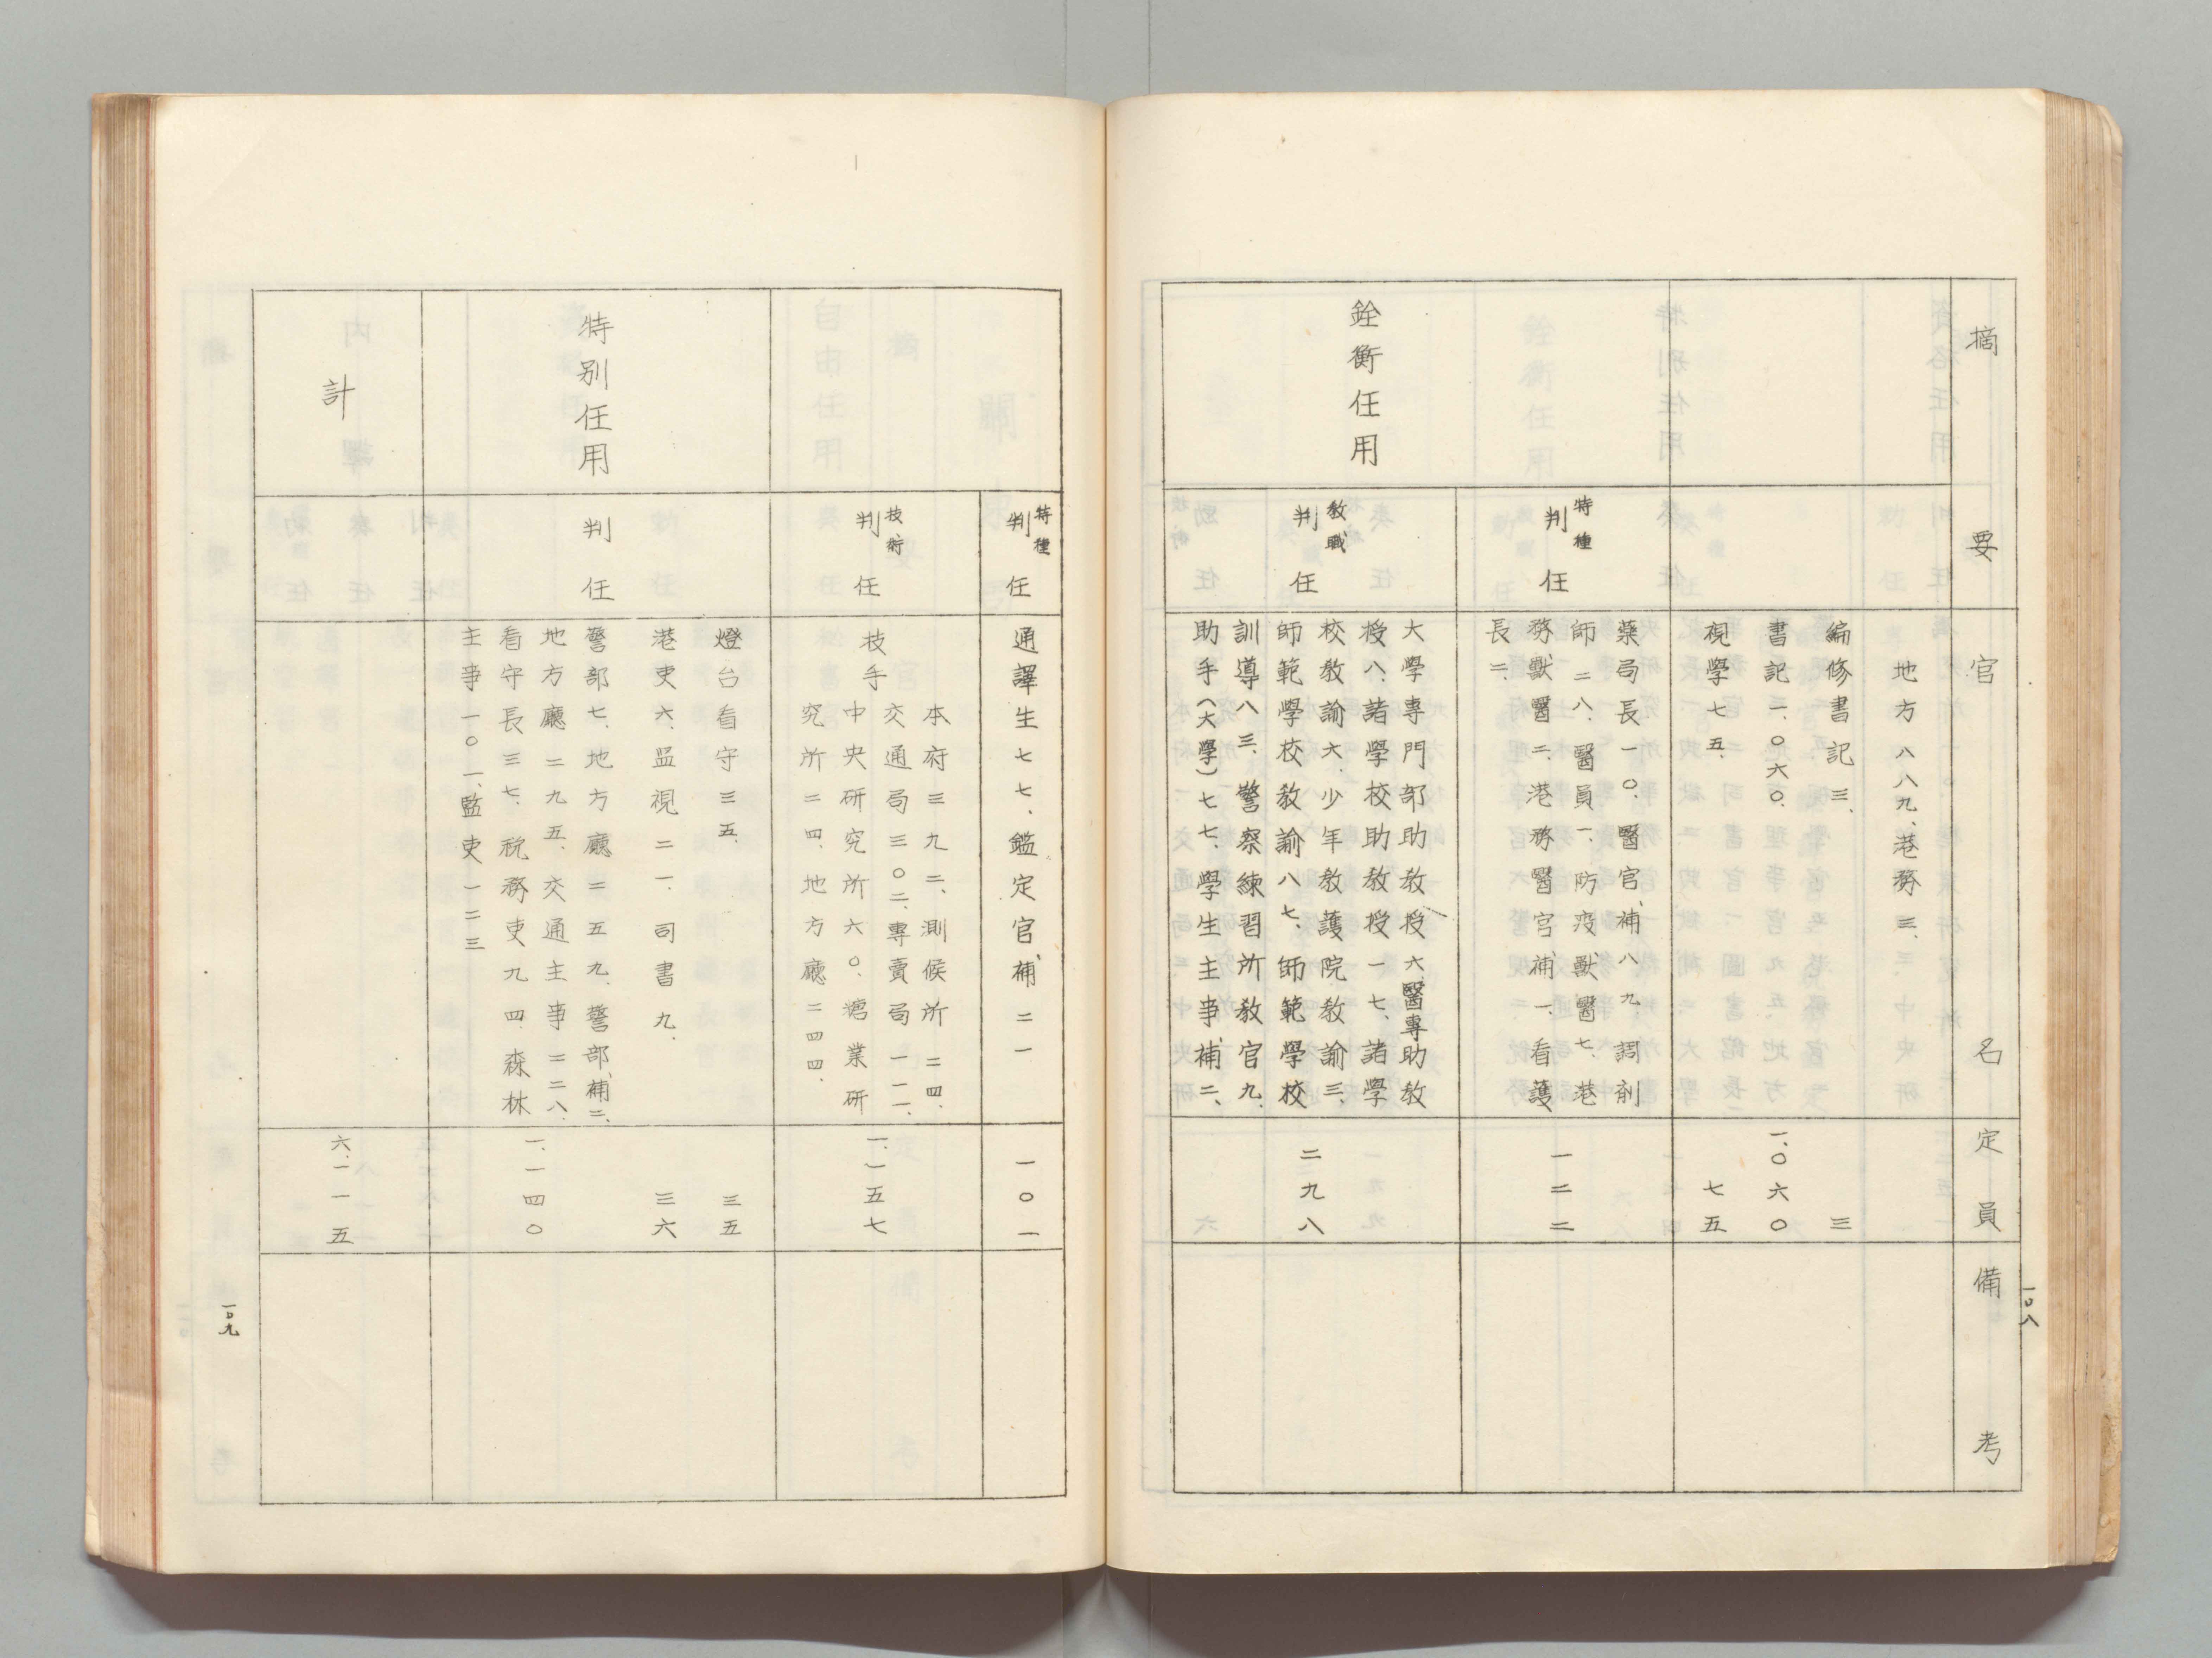 摘要
官名
定員
備考
地方八八九、港務三、
編修書記三、
三
書記一、〇六〇、
一、〇六〇
視學七五、
七五
銓衡任用
特種
判任
藥局長一〇、醫官補八九、調剤
師二八、醫員一、防疫獸醫七、港
務獸醫二、港務醫官補一、看護
長二、
一二二
教職
判任
大學專門部助教授六、醫專助教
授八、諸學校助教授一七、諸學
校教諭六、少年教護院教諭三、
師範學校教諭八七、師範學校
訓導八三、警察練習所教官九、
助手(大學)七七、學生主事補二、
二九八
一〇八
特種
判任
通譯生七七、鑑定官補二一
一〇一
技術
判任
技手
本府三九二、測候所二四、
交通局三〇二、專賣局一一一、
中央研究所六〇、糖業研
究所二四、地方廳二四四、
一、一五七
特別任用
判任
燈台看守三五、
三五
港吏六、監視二一、司書九、
三六
警部七、地方廳二五九、警部補二、
地方廳二九五、交通主事二二八、
看守長三七、税務吏九四、森林
主事一〇一、監吏一二三
一、一四〇
計
六、一一五
一〇九